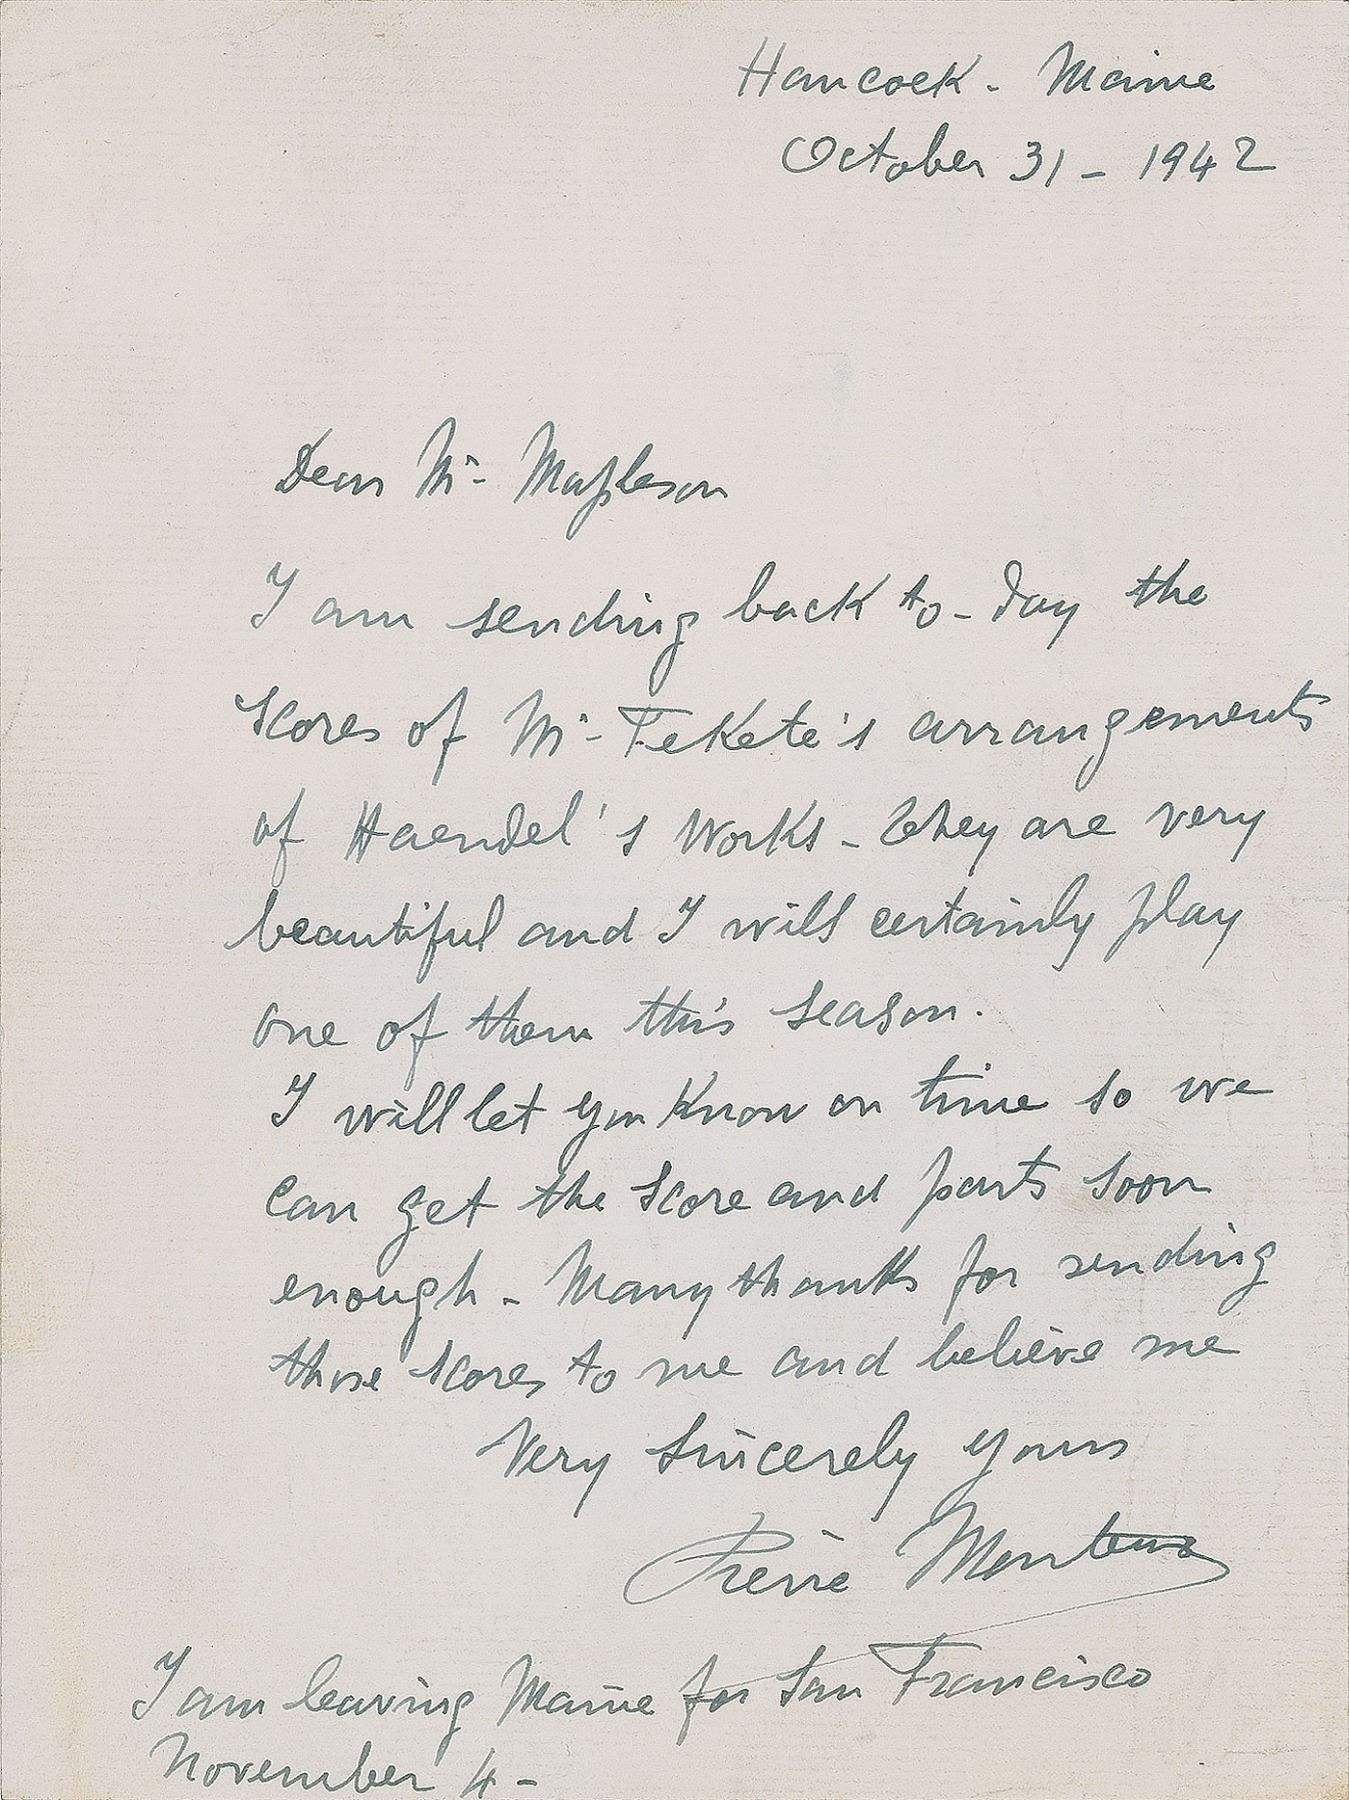 Hancock - Maine
October 31 - 1942
Dear Mr - Mapleson
I am sending back to-day the
scores of Mr - Fekete's arrangements
of Haendel's works - They are very
beautiful and I will certainly play
one of them this season.
I will let you know on time so we
can get the score and parts soon
enough - Many thanks for sending
those scores to me and believe me
Very sincerely yours
Pierre Monteux
I am leaving Maine for San Francisco
November 4 -